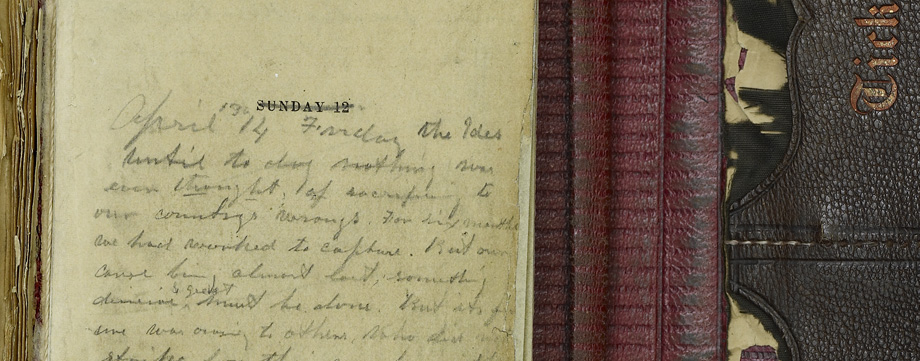 SUNDAY 12
April 13th 14 Friday the Ides
Until to day nothing was
ever thought of sacrificing to
our country's wrongs. For six months
we had worked to capture. But our
cause being almost lost, something
decisive & great must be done. But its f
was owing to others, who did not
strike for the
Tick